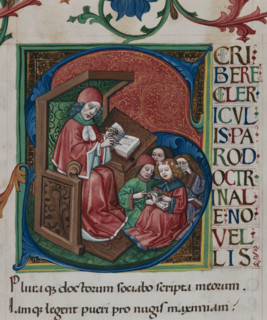 SCRI
BERE
CLER
ICVL
IS·PA
ROD
OCTR
INAL
E·NO
VEL
LIS
Pluraqꝫ doctorum sociabo scripta meorum.
Iamqꝫ legent pueri pro nugis maximiani: